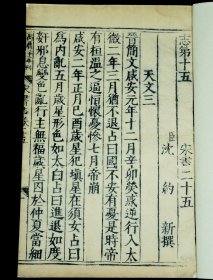 志第十五　宋書二十五
臣沈約新撰
天文三
晉簡文咸安元年十二月辛卯熒惑逆行入太
微二年三月猶不退占曰國不安有憂是時帝
有桓溫之逼恒懷憂慘七月帝崩
咸安二年正月己酉歲星犯填星在須女占曰
為內亂五月歲星形色如太白占曰進退如度
姦邪息變色亂行主無福歲星囚於仲夏當細